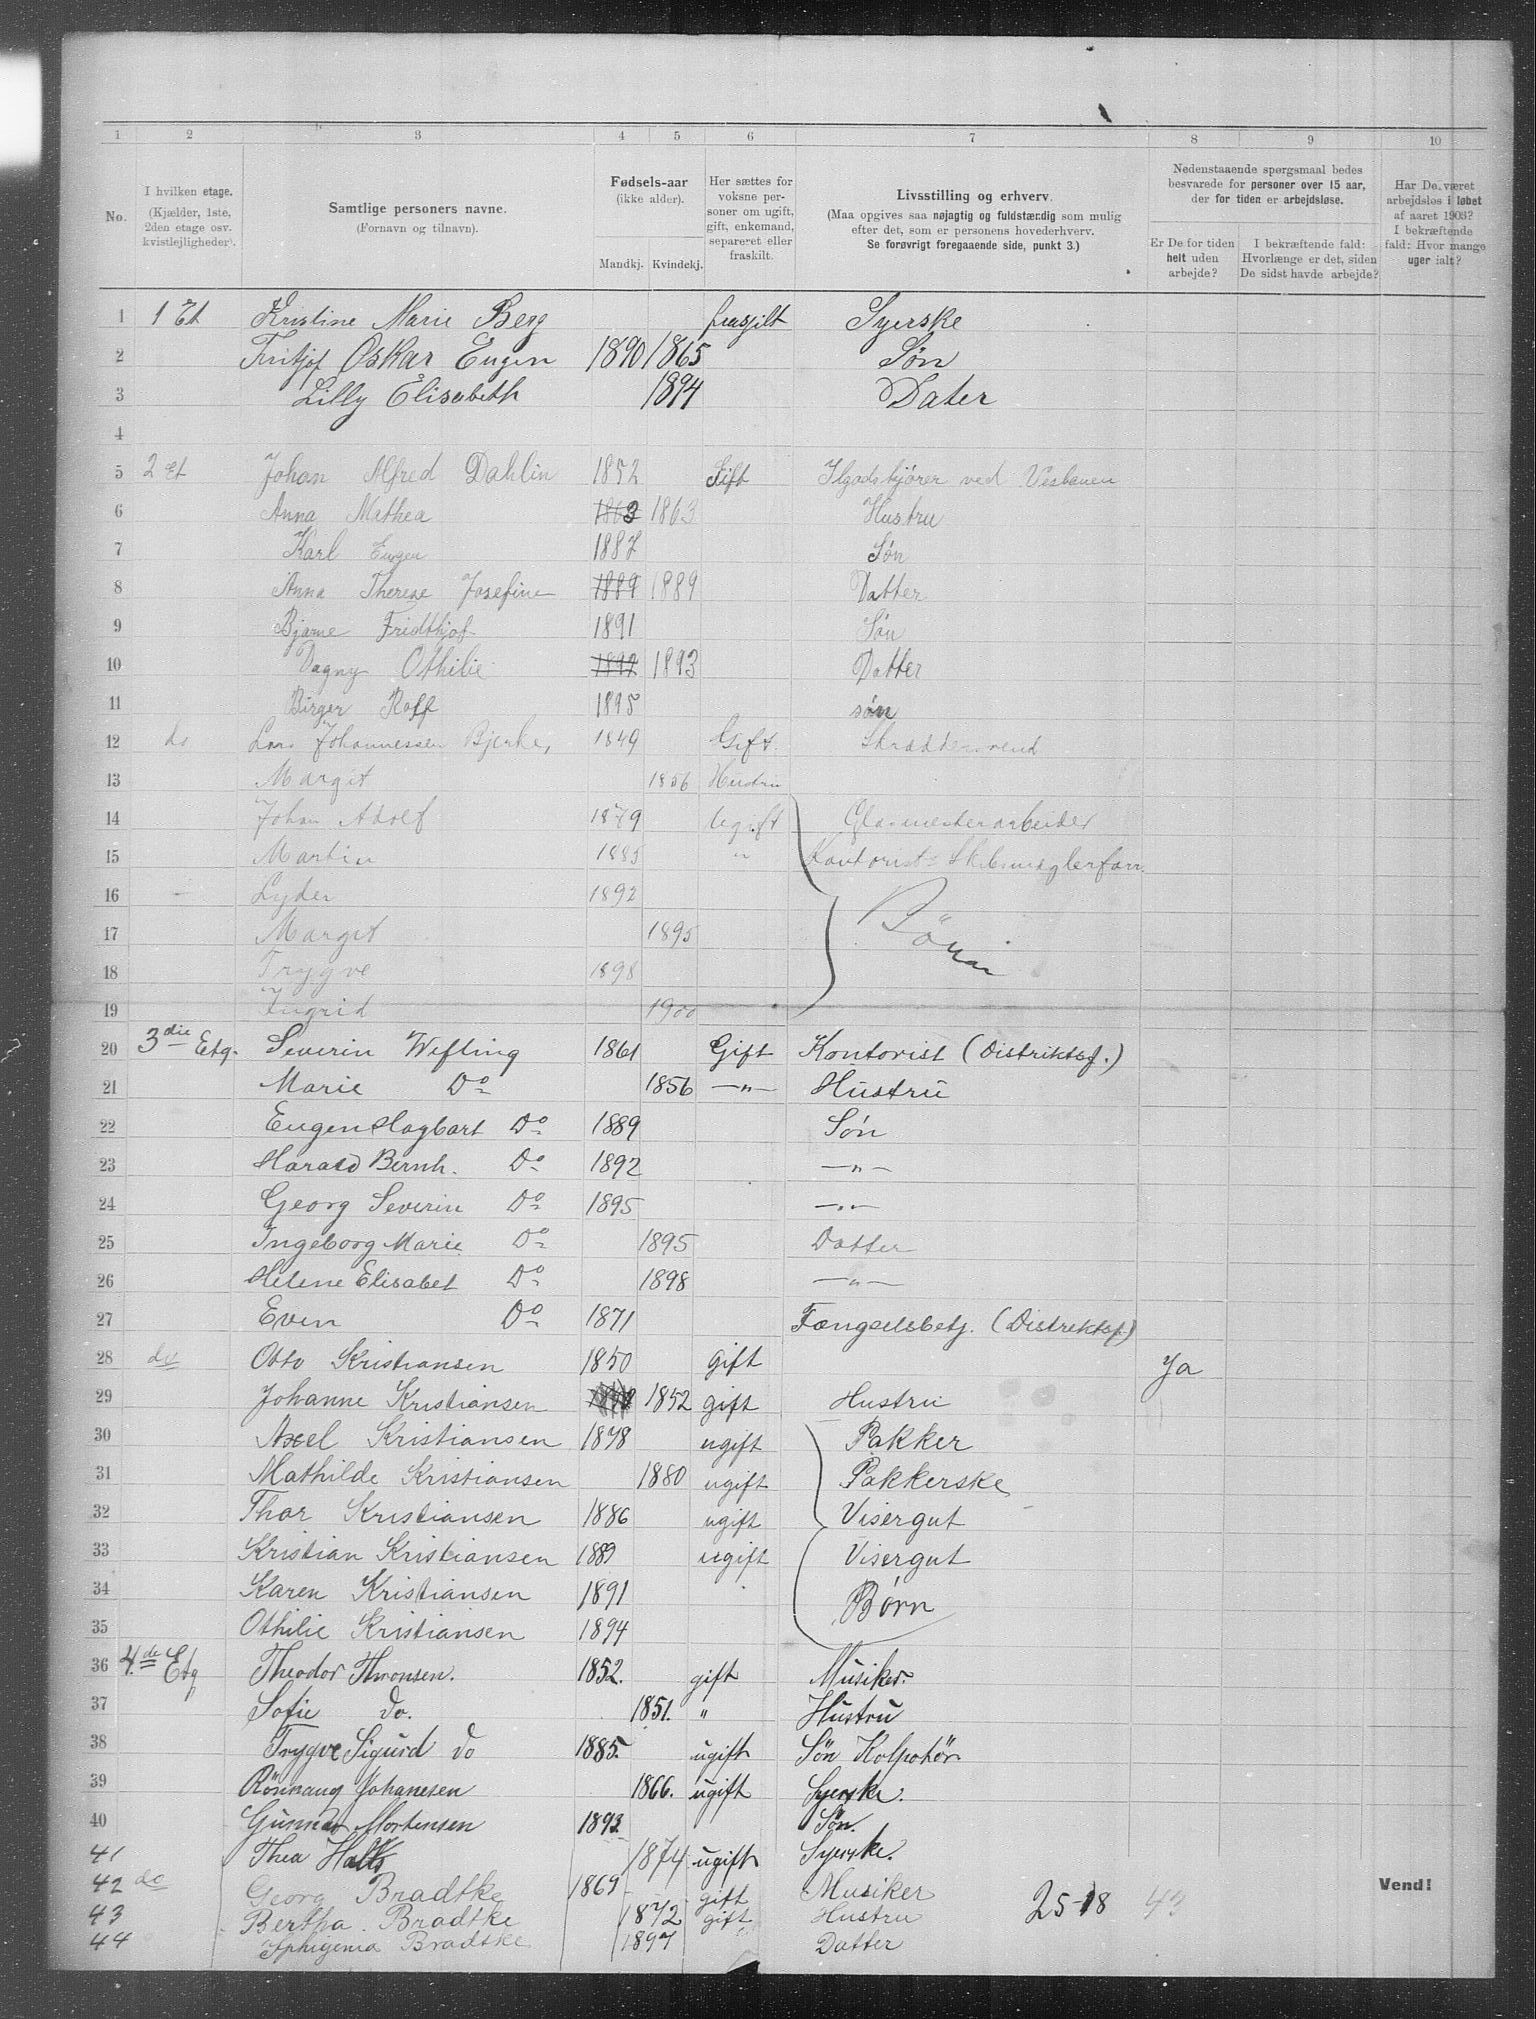 1 2 3 4 5 6 7 8 9 10
No.
I hvilken etage. (Kjælder, 1ste, 2den etage osv. kvistlejligheder).
Samtlige personers navne. (Fornavn og tilnavn).
Fødsels-aar (ikke alder). Mandkj. Kvindekj.
Her sættes for voksne personer om ugift, gift, enkemand, separeret eller fraskilt.
Livsstilling og erhverv. (Maa opgives saa nøjagtig og fuldstændig som mulig efter det, som er personens hovederhverv. Se forøvrigt foregaaende side, punkt 3.)
Nedenstaaende spørgsmaal bedes besvarede for personer over 15 aar, der for tiden er arbejdsløse.
Er De for tiden helt uden arbejde?
I bekræftende fald: Hvorlænge er det, siden De sidst havde arbejde?
Har De været arbejdsløs i løbet af aaret 1903? I bekræftende fald: Hvor mange uger ialt?
1 1 Et Kristine Marie Berg frasjilt Syerske
2 Fritjof Oskar Eugen 1890 1865 Søn
3 Lilly Elisabeth 1894 Dater
4
5 2 et Johan Alfred Dahlin 1852 Gift Ilgodskjører ved Vesbanen
6 Anna Mathea 1863 1863 Hustru
7 Karl Eugen 1887 Søn
8 Anna Therese Josefine 1889 1889 Datter
9 Bjarne Fridthjof 1891 Søn
10 Dagny Othilie 1893 Datter
11 Birger Rolf 1895 søn
12 do Lars Johannessen Bjerke, 1849 Gift. Skræddersvend
13 Margit 1856 Hustru
14 Johan Adolf 1879 Ugift Glasmesterarbeider
15 Martin 1885 " Kontorist
16 Lyder 1892
17 Margit 1895
18 Trygve 1898
19 Ingrid 1900
20 3die Etg. Severin Wefling 1861 Gift Kontorist (Distriktsf.)
21 Marie Do 1856 —"— Hustru
22 Eugen Hagbart Do 1889 Søn
23 Harald Bernh. Do 1892 —"—
24 Georg Severin Do 1895 —"—
25 Ingeborg Marie Do 1895 Datter
26 Helene Elisabet Do 1898 —"—
27 Even Do 1871 Fængselsbetj. (Distriktsf)
28 do Otto Kristiansen 1850 gift Ja
29 Johanne Kristiansen 1852 gift Hustru
30 Axel Kristiansen 1878 ugift Pakker
31 Mathilde Kristiansen 1880 ugift Pakkerske
32 Thor Kristiansen 1886 ugift Visergut
33 Kristian Kristiansen 1889 ugift Visergut
34 Karen Kristiansen 1891 Børn
35 Othilie Kristiansen 1894
36 4.de Etg Theodor Thronsen. 1852. gift Musiker.
37 Sofie Do. 1851. " Hustru
38 Trygve Sigurd Do 1885. ugift Søn Kolpotør
39 Rönnaug Johanesen 1866. ugift Syerske.
40 Gunnar Mortensen 1893 Søn.
41 Thea 1874 ugift Syerske.
42 do Georg Bradtke 1869 gift Musiker 25-18 43
43 Bertha Bradtke 1872 gift Hustru
44 Iphigenia Bradtke 1897 Datter
Vend!